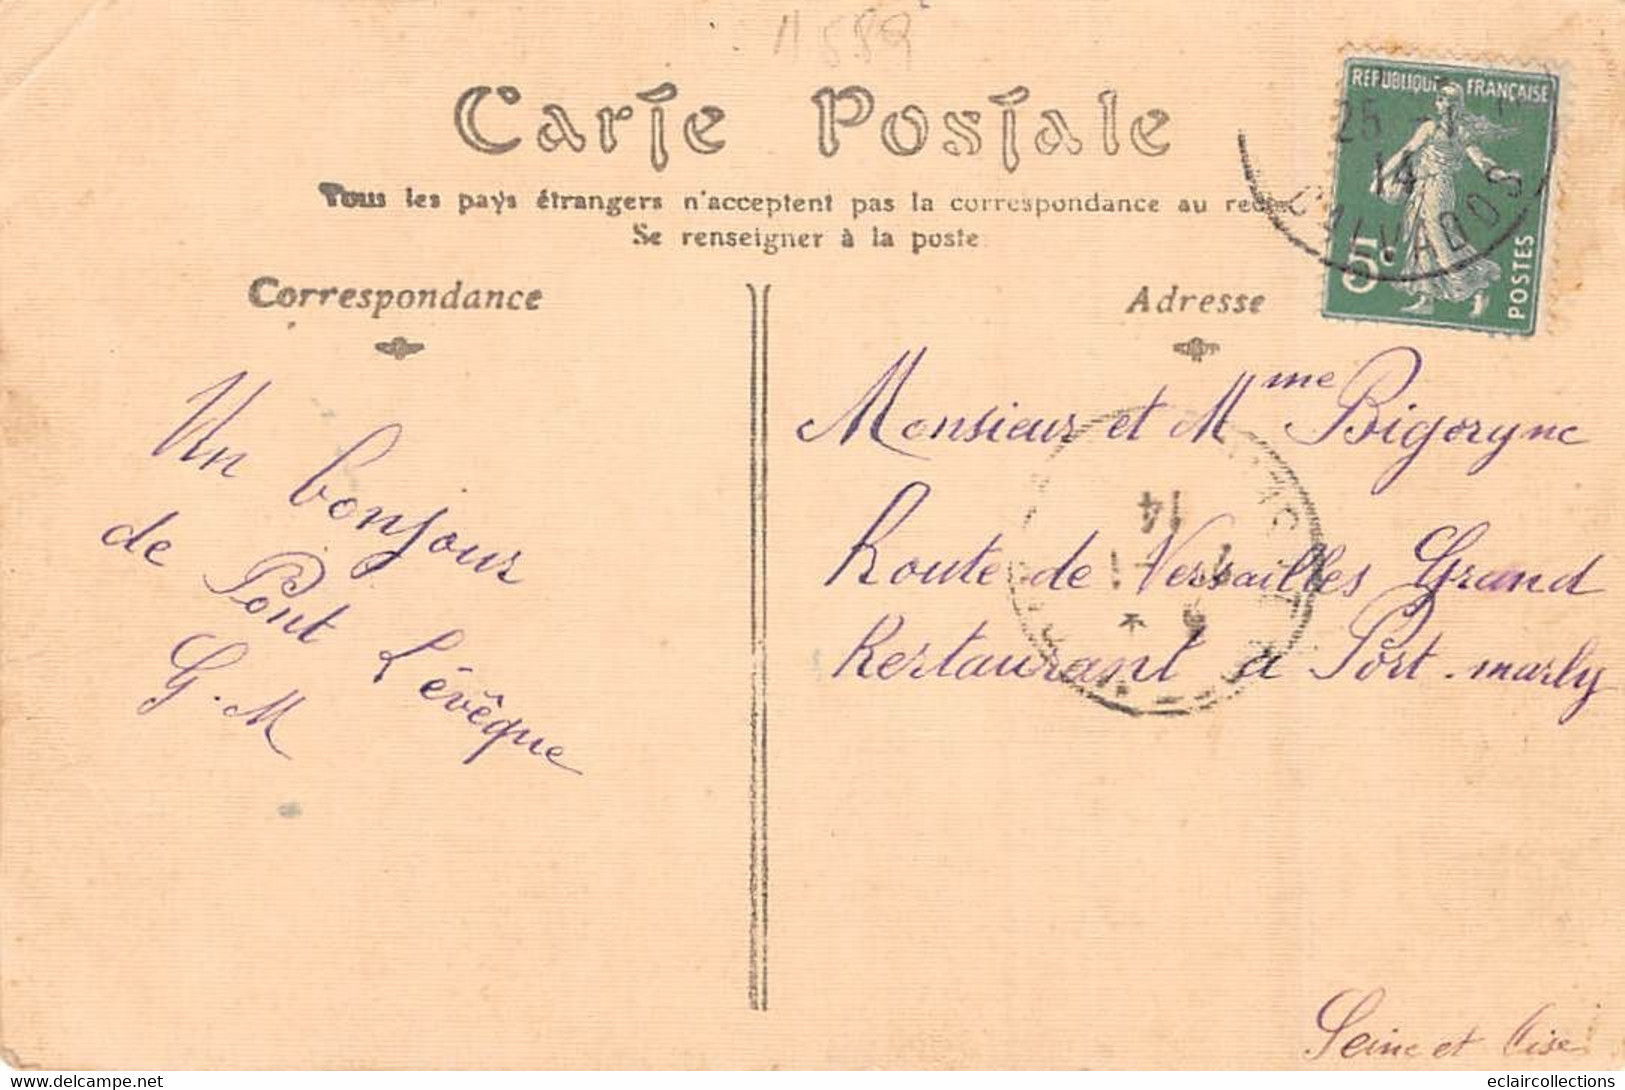 11589
Carte Postale
REPUBLIQUE FRANÇAISE
5c
POSTES
25 -1
14
CALVADOS
Tous les pays étrangers n'acceptent pas la correspondance au recto
Se renseigner à la poste
Correspondance
Adresse
Un bonjour
de Pont L'évêque
G. M
Monsieur et Mme Bigoryne
Route de Versailles Grand
Restaurant a Port-marly
Seine et Oise
14
eclaircollections